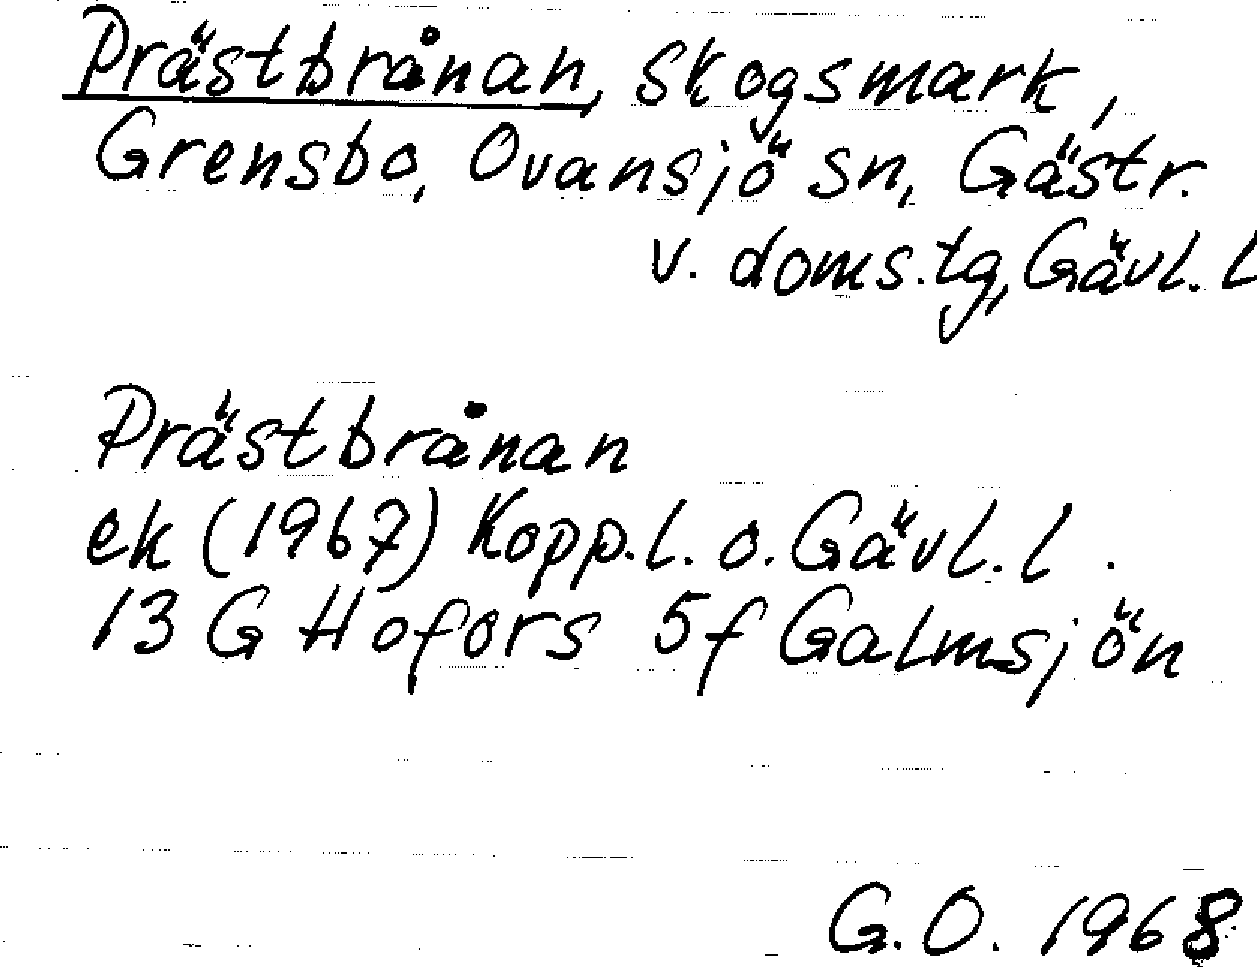 Prästbrånan, skogsmark,
Grensbo, Ovansjö sn, Gästr.
v. doms.tg, Gävl. L
Prästbrånan
ek (1967) Kopp.l. o. Gävl. l.
13 G Hofors 5f Galmsjön
G.O. 1968